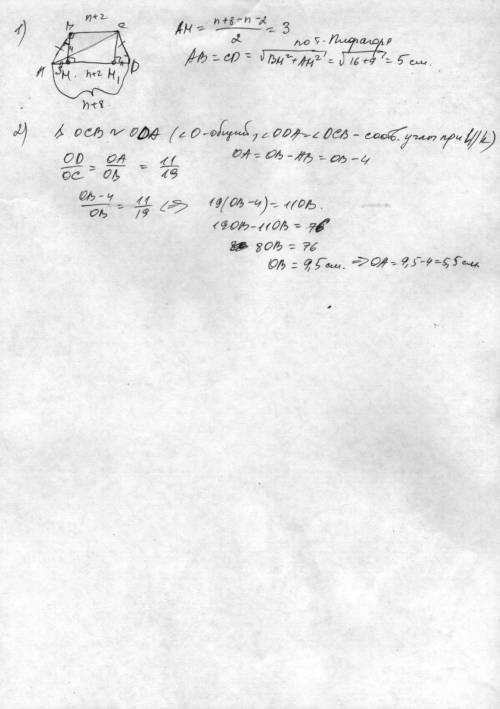 1)
n+2
B C
A M n+2 M₁ D
3
n+8
AM = (n+8-n-2)/2 = 3
по т. Пифагора
AB = CD = √(BM²+AM²) = √(16+9) = 5 см.
2) Δ OCB ~ ODA (∠O-общий, ∠ODA=∠OCB - соотв. углы при b//k)
OD/OC = OA/OB = 11/19 OA = OB-AB = OB-4
(OB-4)/OB = 11/19 (=> 19(OB-4) = 11OB.
19OB-11OB = 76
8OB = 76
OB = 9,5 см. => OA = 9,5-4=5,5 см